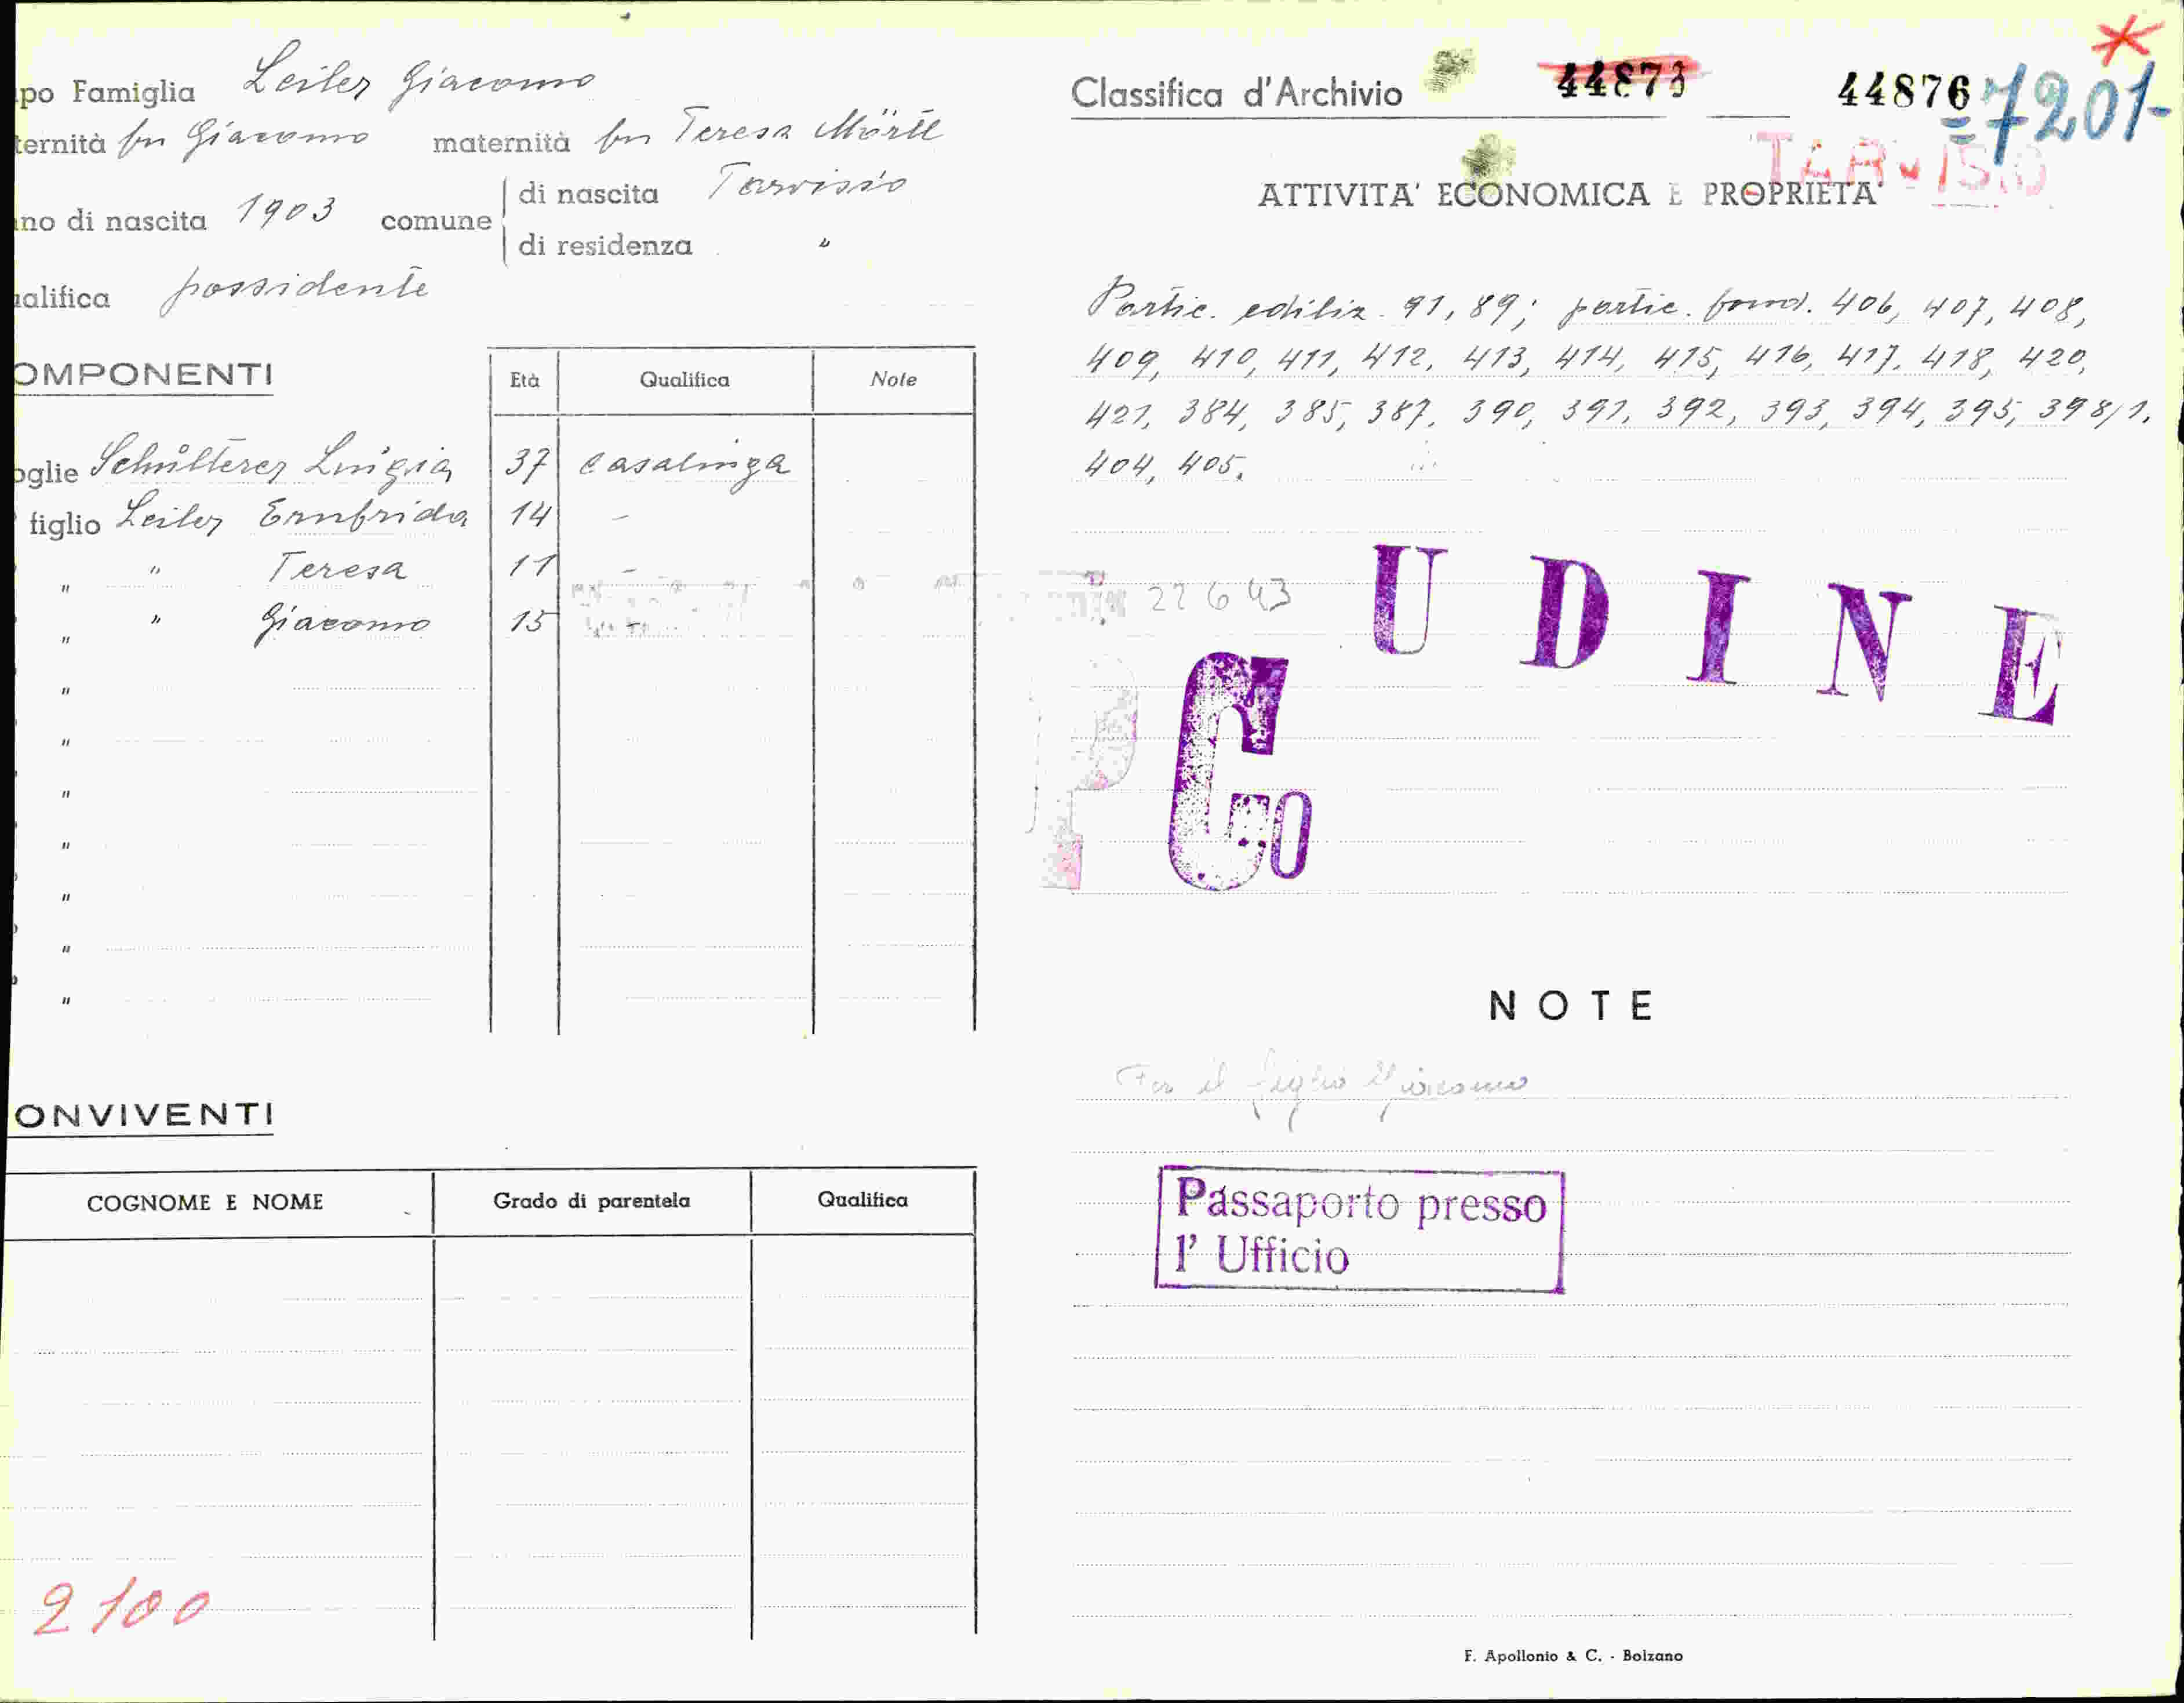 po Famiglia Leiler Giacomo
ternità fu Giacomo maternità fu Teresa Mörtl
no di nascita 1903 comune di nascita Tarvisio
di residenza "
alifica possidente
OMPONENTI Età Qualifica Note
oglie Schülterer Luigia 37 casalinga
figlio Leiler Ernfrida 14 -
" " Teresa 11 -
" " Giacomo 15 -
"
"
"
"
"
"
"
ONVIVENTI
COGNOME E NOME Grado di parentela Qualifica
2100
Classifica d'Archivio 44873 44876 = 7201-
TARVISIO
ATTIVITA' ECONOMICA E PROPRIETA'
Partic. ediliz. 91, 89; partic. fond. 406, 407, 408,
409, 410, 411, 412, 413, 414, 415, 416, 417, 418, 420,
421, 384, 385, 387, 390, 391, 392, 393, 394, 395, 398/1,
404, 405.
22643
UDINE
P Co
NOTE
Per il figlio Giacomo
Passaporto presso
l' Ufficio
F. Apollonio & C. - Bolzano